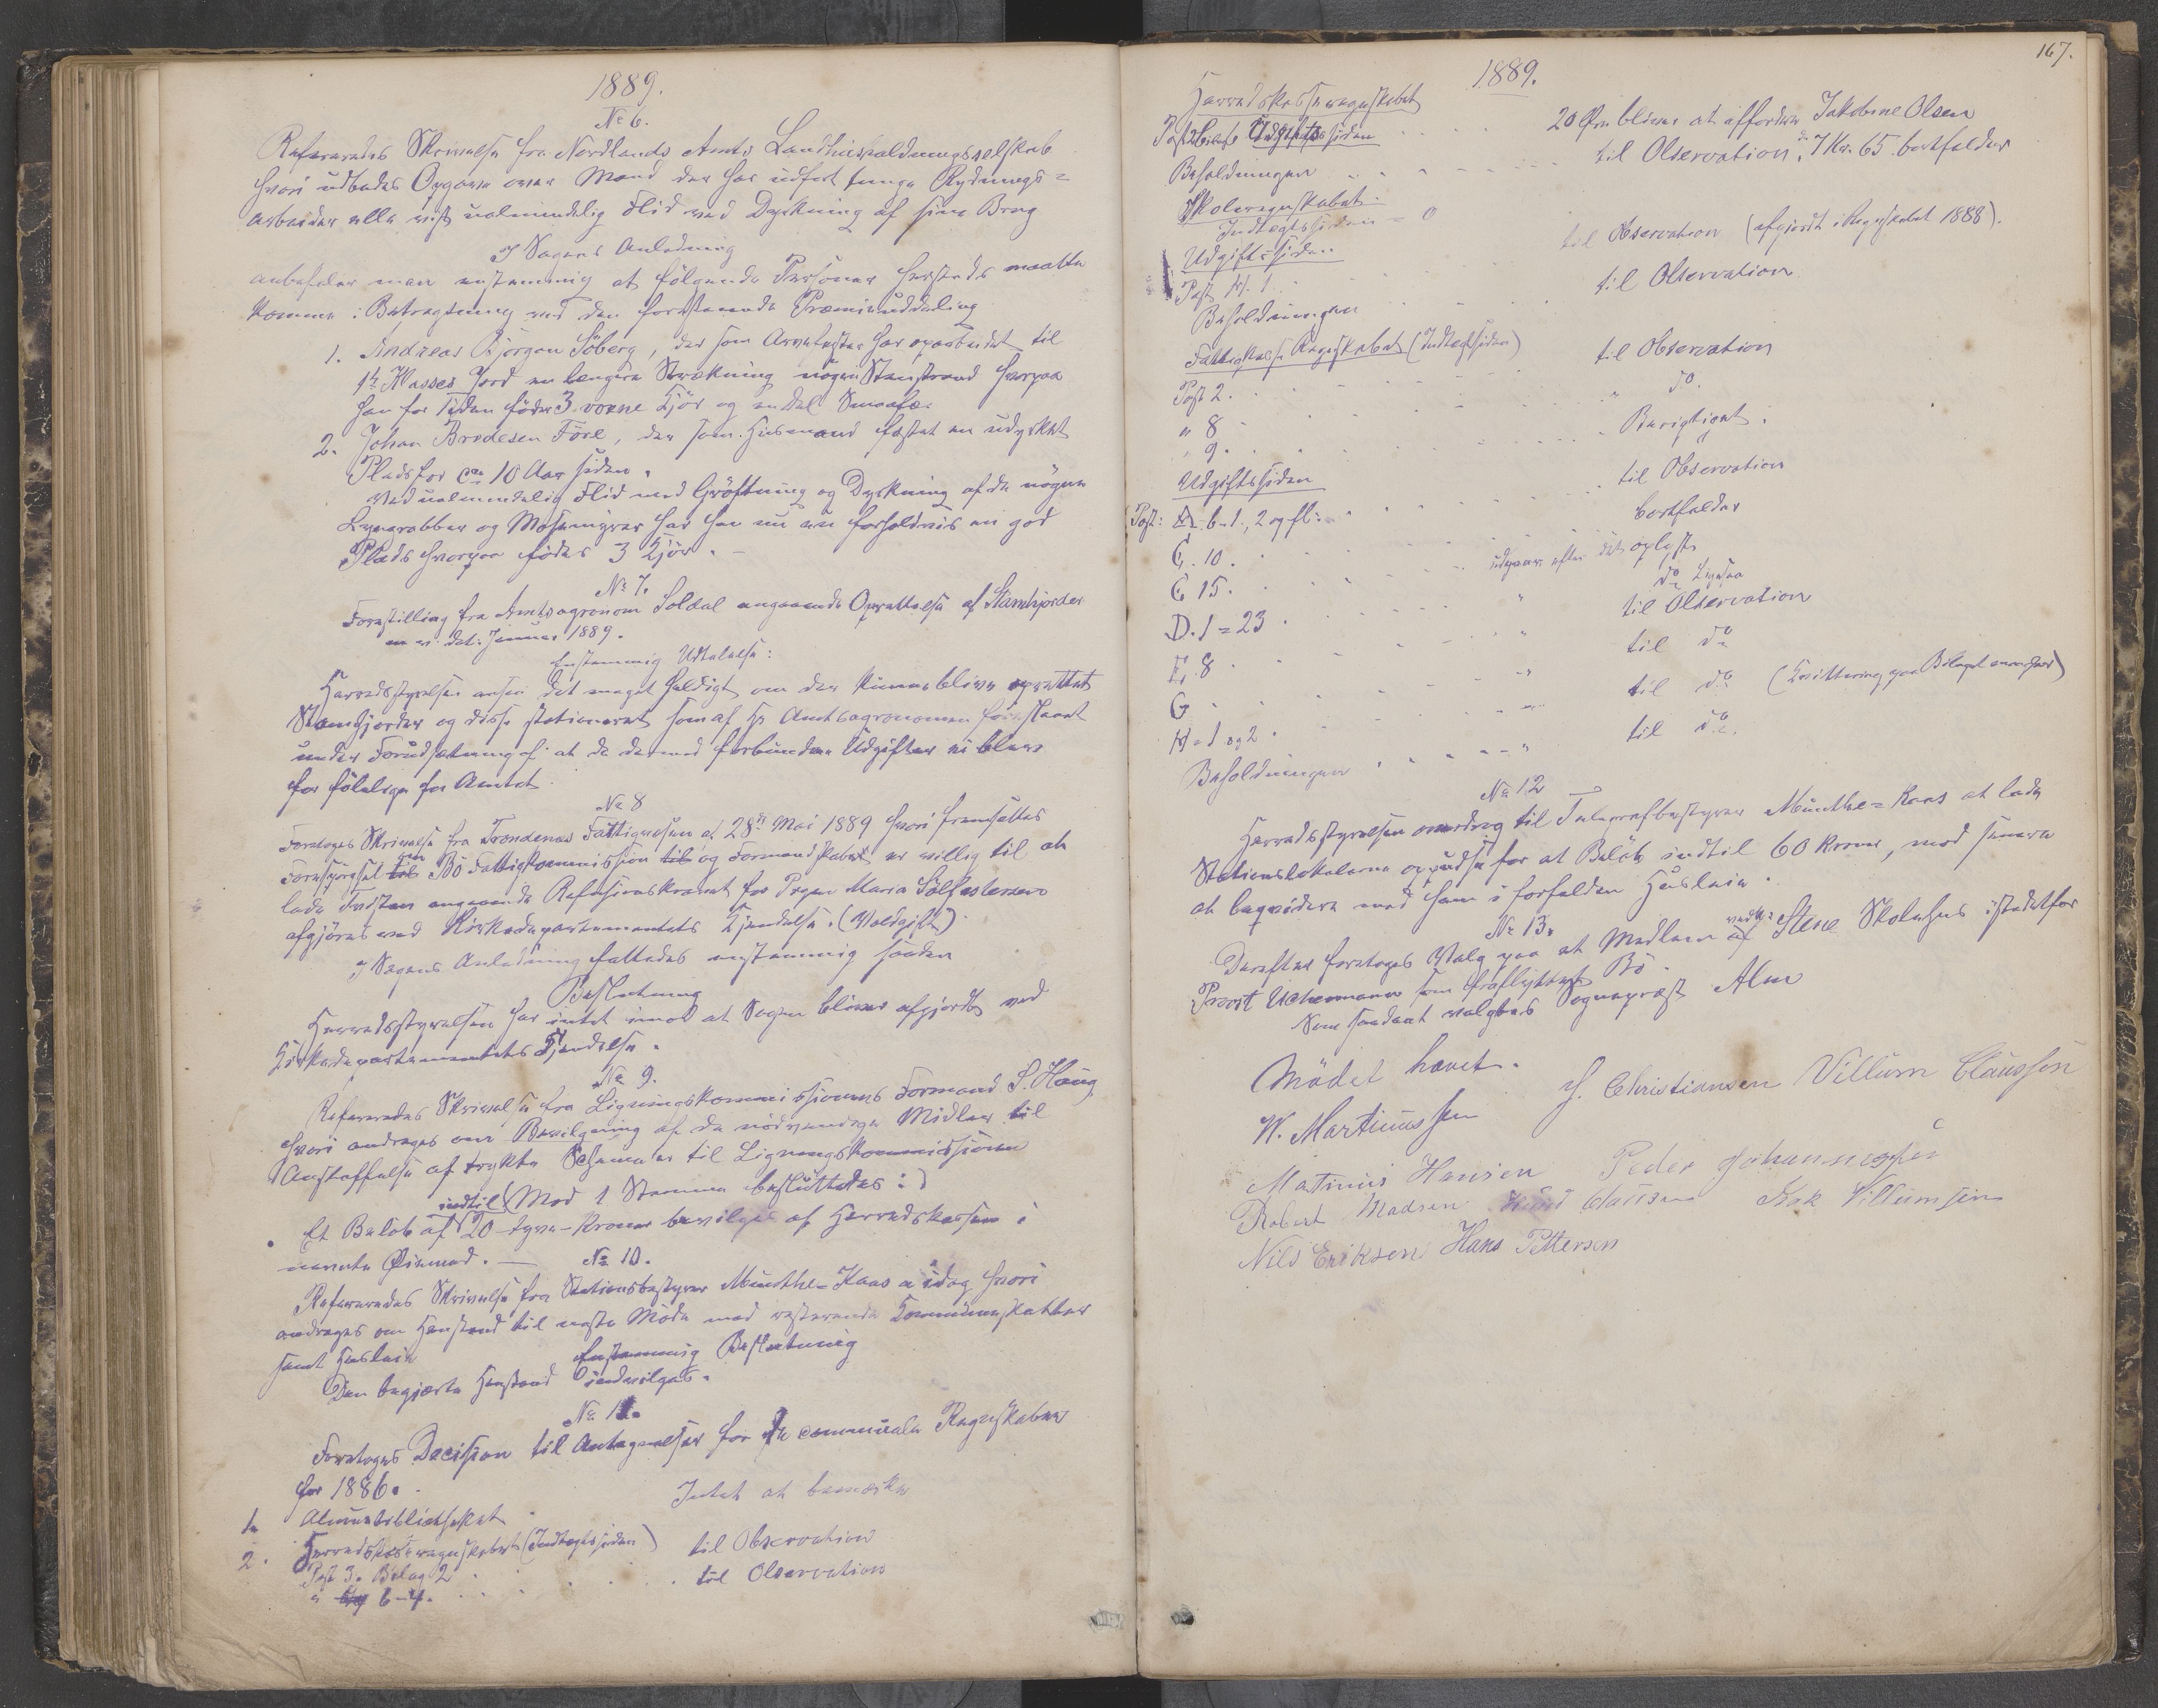 1889.
No 6.
Refereredes Skrivelse fra Nordlands Amts Landhusholdningsselskab
hvori udbedes Opgave over Mænd der har udført tunge Rydnings=
arbeider eller vist ualmindelig Flid ved Dyrkning af sine Brug
I Sagens Anledning
anbefaler man enstemmig at følgende Personer hersteds maatte
komme i Betragtning ved den forestaaende Præmieuddeling
1. Andreas Bjørgan Söberg, der som Arvefæster har oparbeidet til
1ste Klasses Jord en længere Strækning nøgen Stenstrand hvorpaa
han for Tiden føder 3 voxne Kjör og endel Smaafæ.
2. Johan Brodesen Före, der som Husmand fæstet en udyrket
Plads for ca 10 Aar siden.
Ved ualmindelig Flid med Gröftning og Dyrkning af de nögne
Lyngrabber og Mosemyrer har han nu en forholdsvis en god
Plads hvorpaa födes 3 Kjör. -
No 7.
Forestilling fra Amtsagronom Soldal angaaende Oprettelse af Stamhjorder
m. v. dat: Januar 1889.
Enstemmig Udtalelse:
Herredsstyrelsen anser det meget heldigt om der kunne blive oprettet
Stamhjorder og disse stationeret som af Hr Amtsagronomen foreslaaet
under Forudsætning af at de dermed forbundne Udgifter ei bliver
for følelige for Amtet
No 8
Foretoges Skrivelse fra Trondenæs Fattigvæsen af 28de Mai 1889 hvori fremsattes
Forespørgsel om Bö Fattigkommission og Formandskabet er villig til at
lade Tvisten angaaende Refusionskravet for Pigen Maria Sölfestersen
afgjöres ved Kirkedepartementets Kjendelse. (Voldgift)
I Sagens Anledning fattedes enstemmig saadan
Beslutning
Herredsstyrelsen har intet imod at Sagen bliver afgjordt ved
Kirkedepartementets Kjendelse.
No 9.
Refereredes Skrivelse fra Ligningskommissionens Formand S. Haug
hvori andrages om Bevilgning af de nödvendige Midler til
Anskaffelse af trykte Schemaer til Ligningskommissionen
Mod 1 Stemme besluttedes:
Et Beløb af indtil 20 - tyve - Kroner bevilges af Herredskassen i
nævnte Øiemed. -
No 10.
Refereredes Skrivelse fra Stationsbestyrer Münthe=Kaas a idag hvori
andrages om Henstand til næste Møde med resterende Kommuneskatter
samt Husleie
Enstemmig Beslutning
Den begjærte Henstand indvilges.
No 11.
Foretoges Decision til Antegnelser for de communale Regnskaber
for 1886.
1. Intet at bemærke
2. Herredskasseregnskabet (Indtægtssiden)
Post 3. Bilag 2 til Observation
" 6-4. til Observation
167.
1889.
Herredskasseregnskabet
Udgiftssiden 20 Øre bliver at affordre Jakobine Olsen
Beholdningen til Observation, 7 Kr. 65 bortfalder
Skoleregnskabet.
Indtægtssiden = 0
Udgiftssiden
Post H. 1 til Observation (afgjordt i Regnskabet 1888).
Beholdningen til Observation
Fattigkasse Regnskabet (Indtægtsiden)
Post 2. til Observation
" 8 " do.
" 9. Berigtiget.
Udgiftssiden
Post: A. b-1, 2 og fl: til Observation
C. 10. bortfalder
C 15. udgaar efter det oplyste
D. 1=23 " do Ligesaa
E. 8 " til Observation
G " til do
H-1 og 2. " til do (Kvittering paa Bilaget )
Beholdningen " til do.
No 12
Herredsstyrelsen overdrog til Telegrafbestyrer Münthe=Kaas at lade
Stationslokalerne oppudse for et Beløb indtil 60 Kroner, mod senere
at liqvidere med ham i forfalden Husleie.
No 13.
Derefter foretoges Valg paa et Medlem vedk: Stene Skolehus istedetfor
Provst Uchermann som fraflyttet Bö.
Som saadant valgtes Sogneprest Alm
Mödet hævet.
W. Martinussen J. Christiansen Villum Claussen
Matinus Hansen Peder Johannessen
Robert Madsen Knud Clausen Isak Villumsen
Nils Eriksen Hans Pettersen